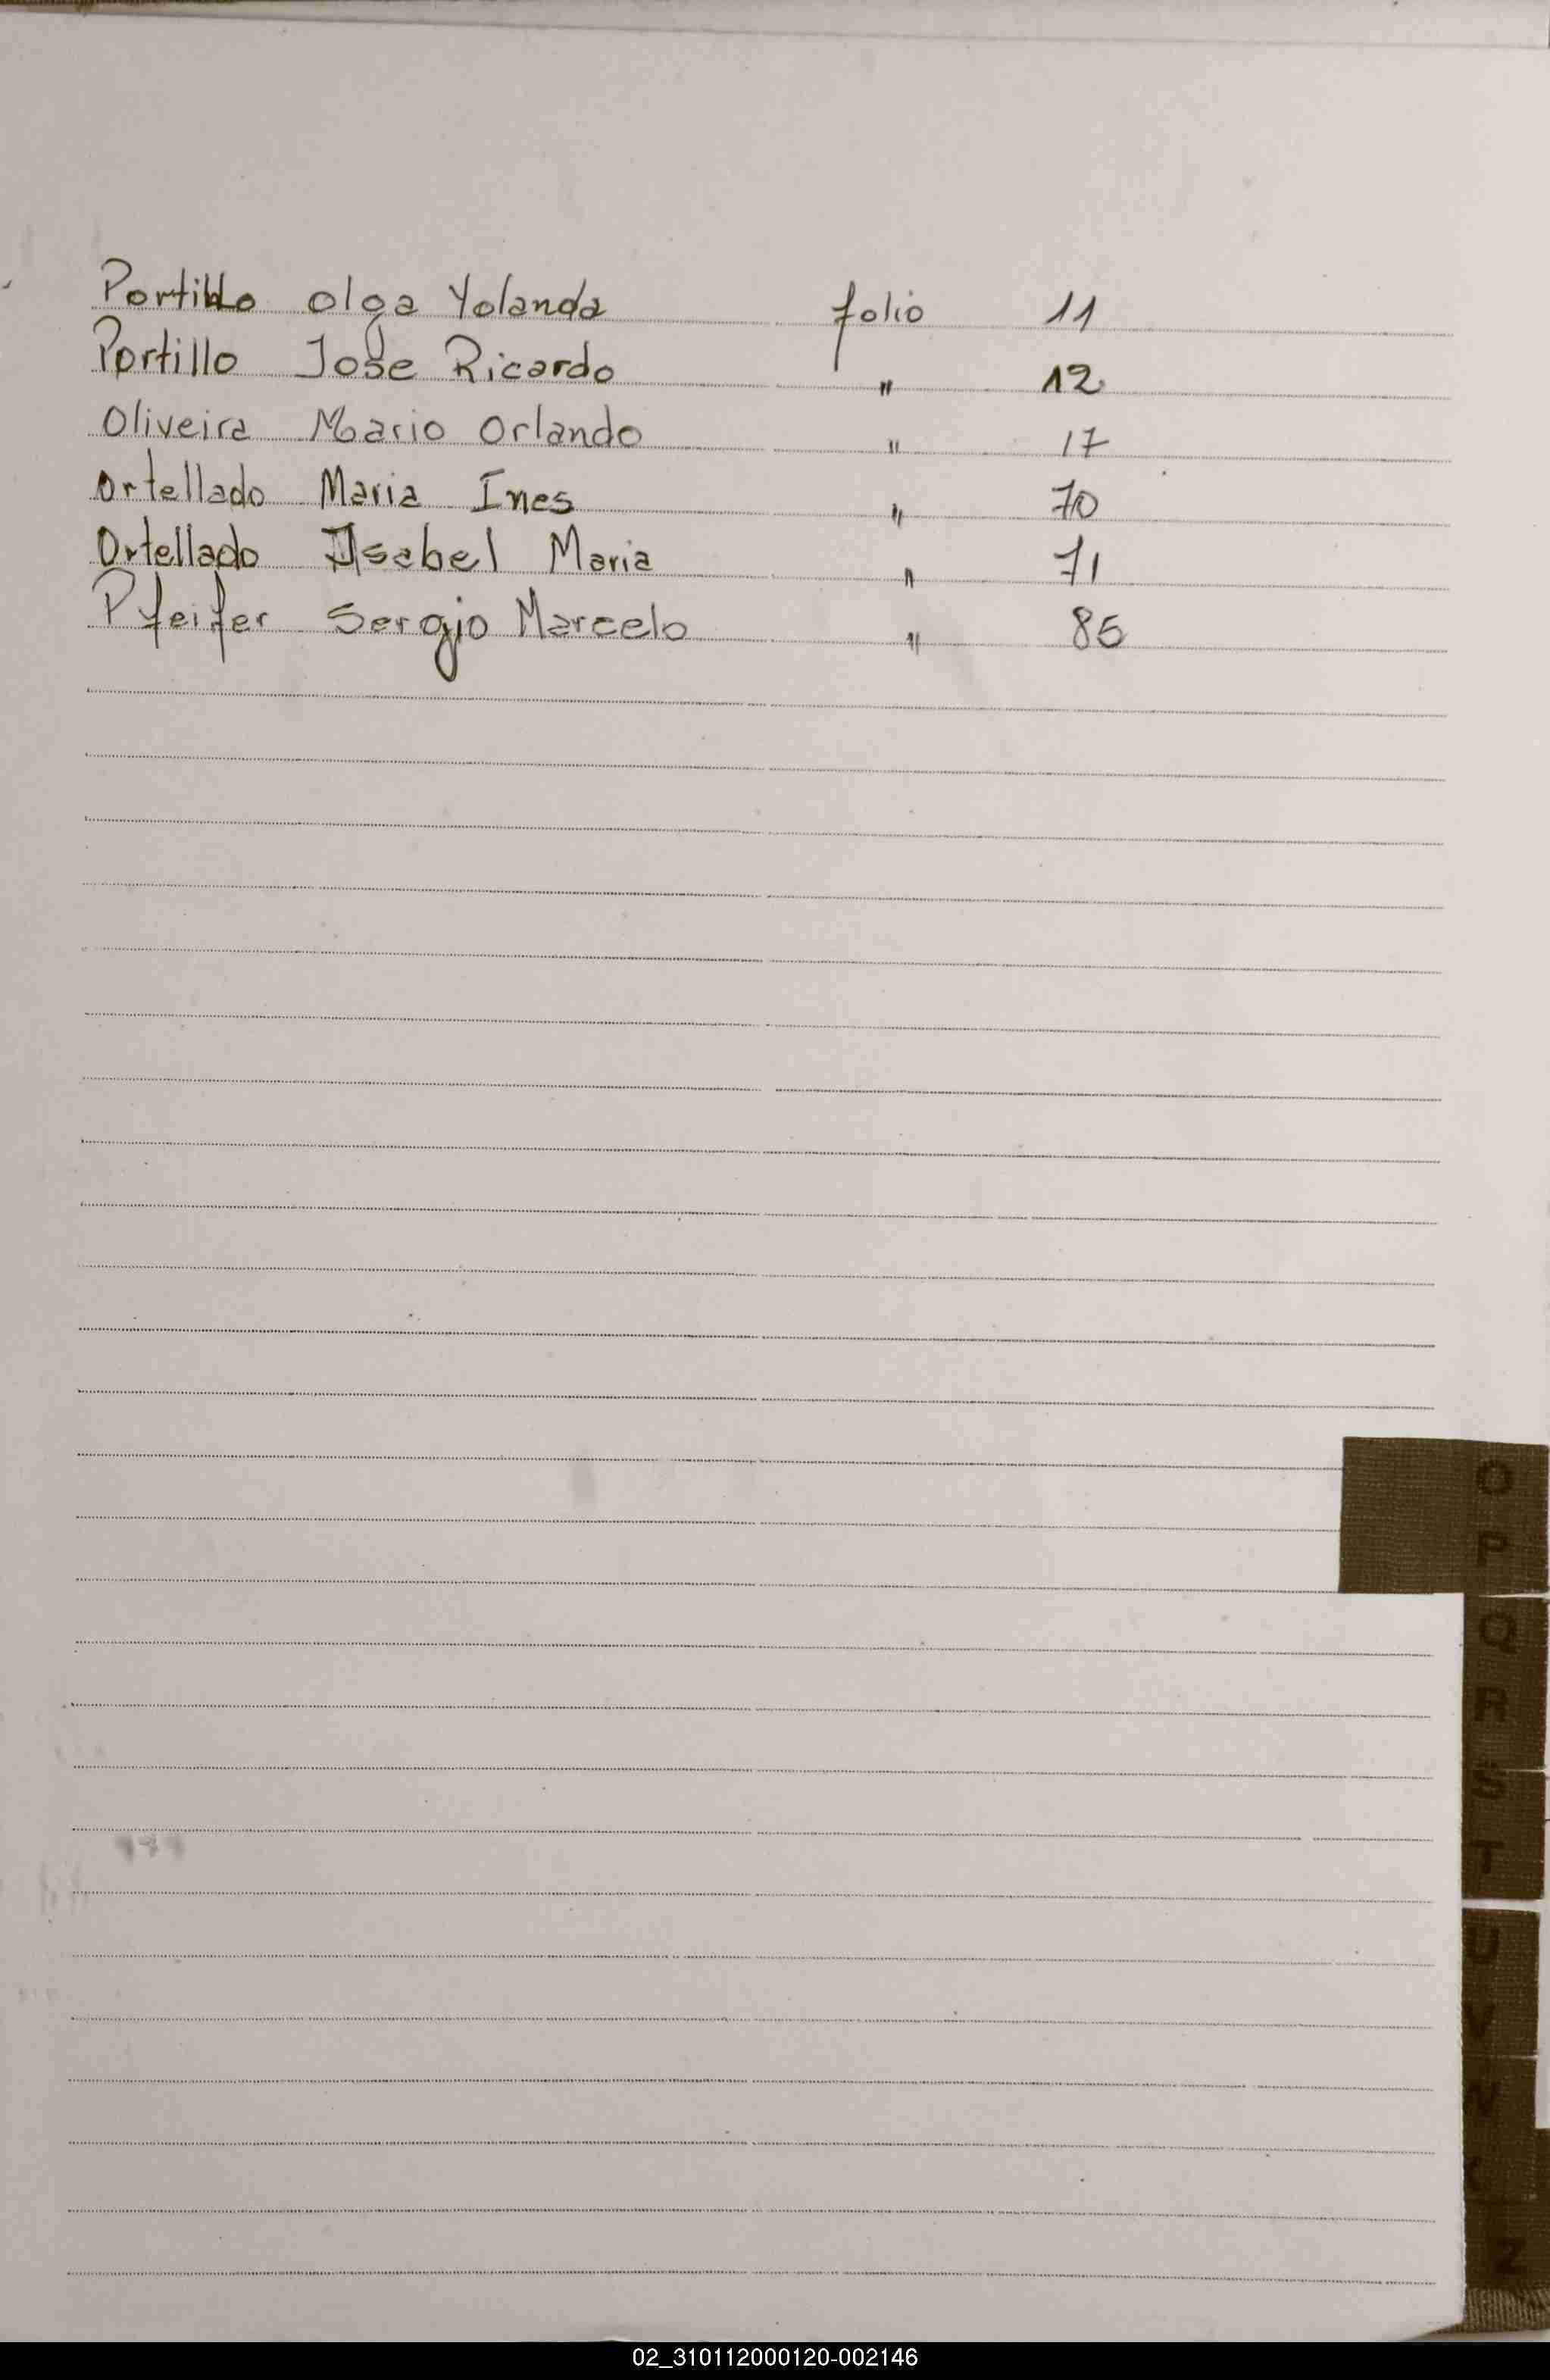 Portillo Olga Yolanda folio 11
Portillo Jose Ricardo " 12
Oliveira Mario Orlando " 17
Ortellado Maria Ines " 70
Ortellado Isabel Maria " 71
Pfeifer Sergio Marcelo " 85
O
P
Q
R
S
T
U
V
W
Z
02_310112000120-002146